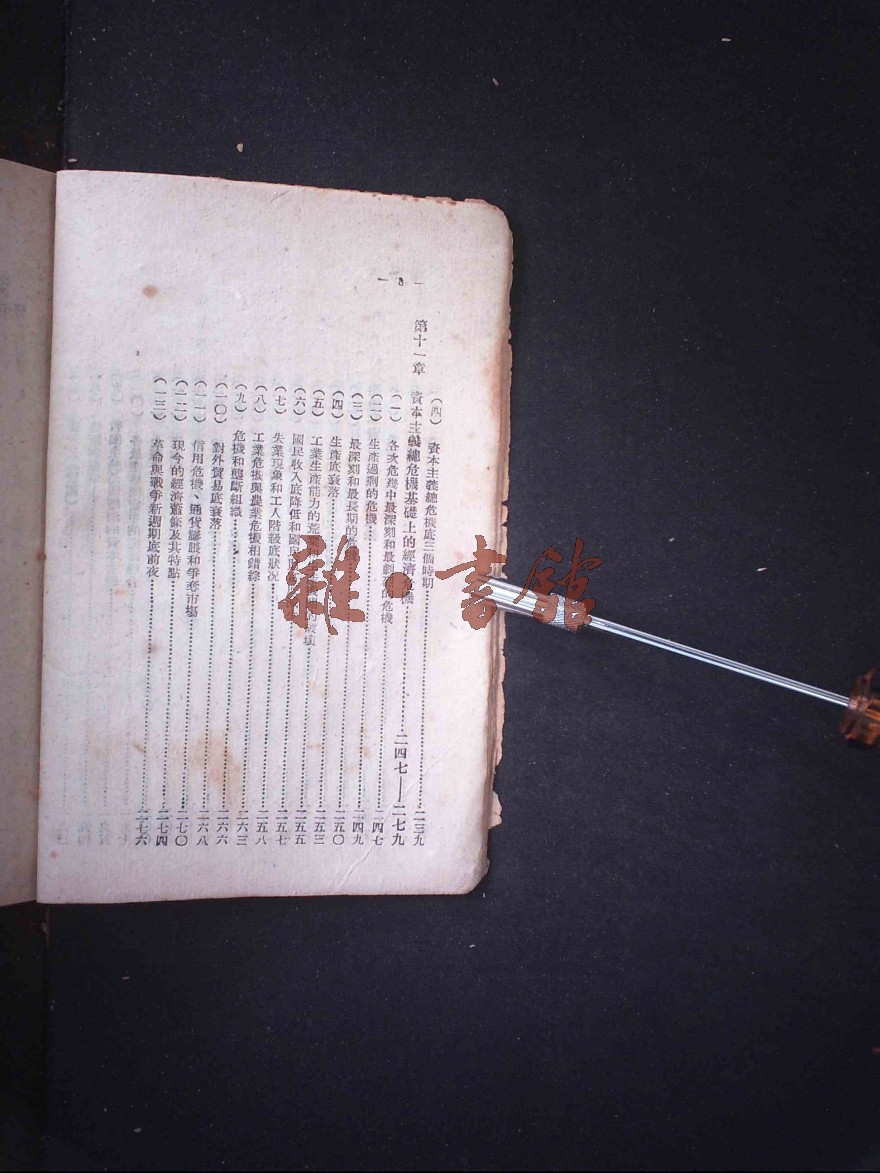 — 8 —
(四) 資本主義總危機底三個時期……二三九
第十一章 資本主義總危機基礎上的經濟危機……二四七——二七九
(一) 各次危機中最深刻和最劇烈的危機……二四七
(二) 生產過剩的危機……二四九
(三) 最深刻和最長期的危機……二五〇
(四) 生產底衰落……二五三
(五) 工業生產能力的荒廢……的破壞……二五五
(六) 國民收入底降低和國民……二五七
(七) 失業現象和工人階級底狀况……二五八
(八) 工業危機與農業危機相錯綜……二六三
(九) 危機和壟斷組織……二六六
(一〇) 對外貿易底衰落……二六八
(一一) 信用危機、通貨膨脹和爭奪市場……二七〇
(一二) 現今的經濟蕭條及其特點……二七四
(一三) 革命與戰爭新週期底前夜……二七六
雜·書館